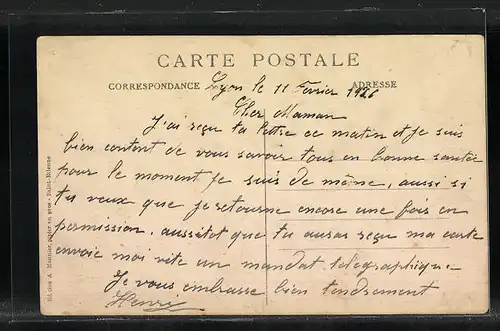 CARTE POSTALE
CORRESPONDANCE
ADRESSE
Lyon le 11 Février 1926
Cher Maman
J'ai reçu ta lettre ce matin et je suis
bien content de vous savoir tous en bonne santée
pour le moment je suis de même, aussi si
tu veux que je retourne encore une fois en
permission, aussitot que tu auras reçu ma carte
envoie moi vite un mandat télégraphique.
Je vous embrasse bien tendrement
Henri
A. Mounier, papier en gros - Saint-Etienne